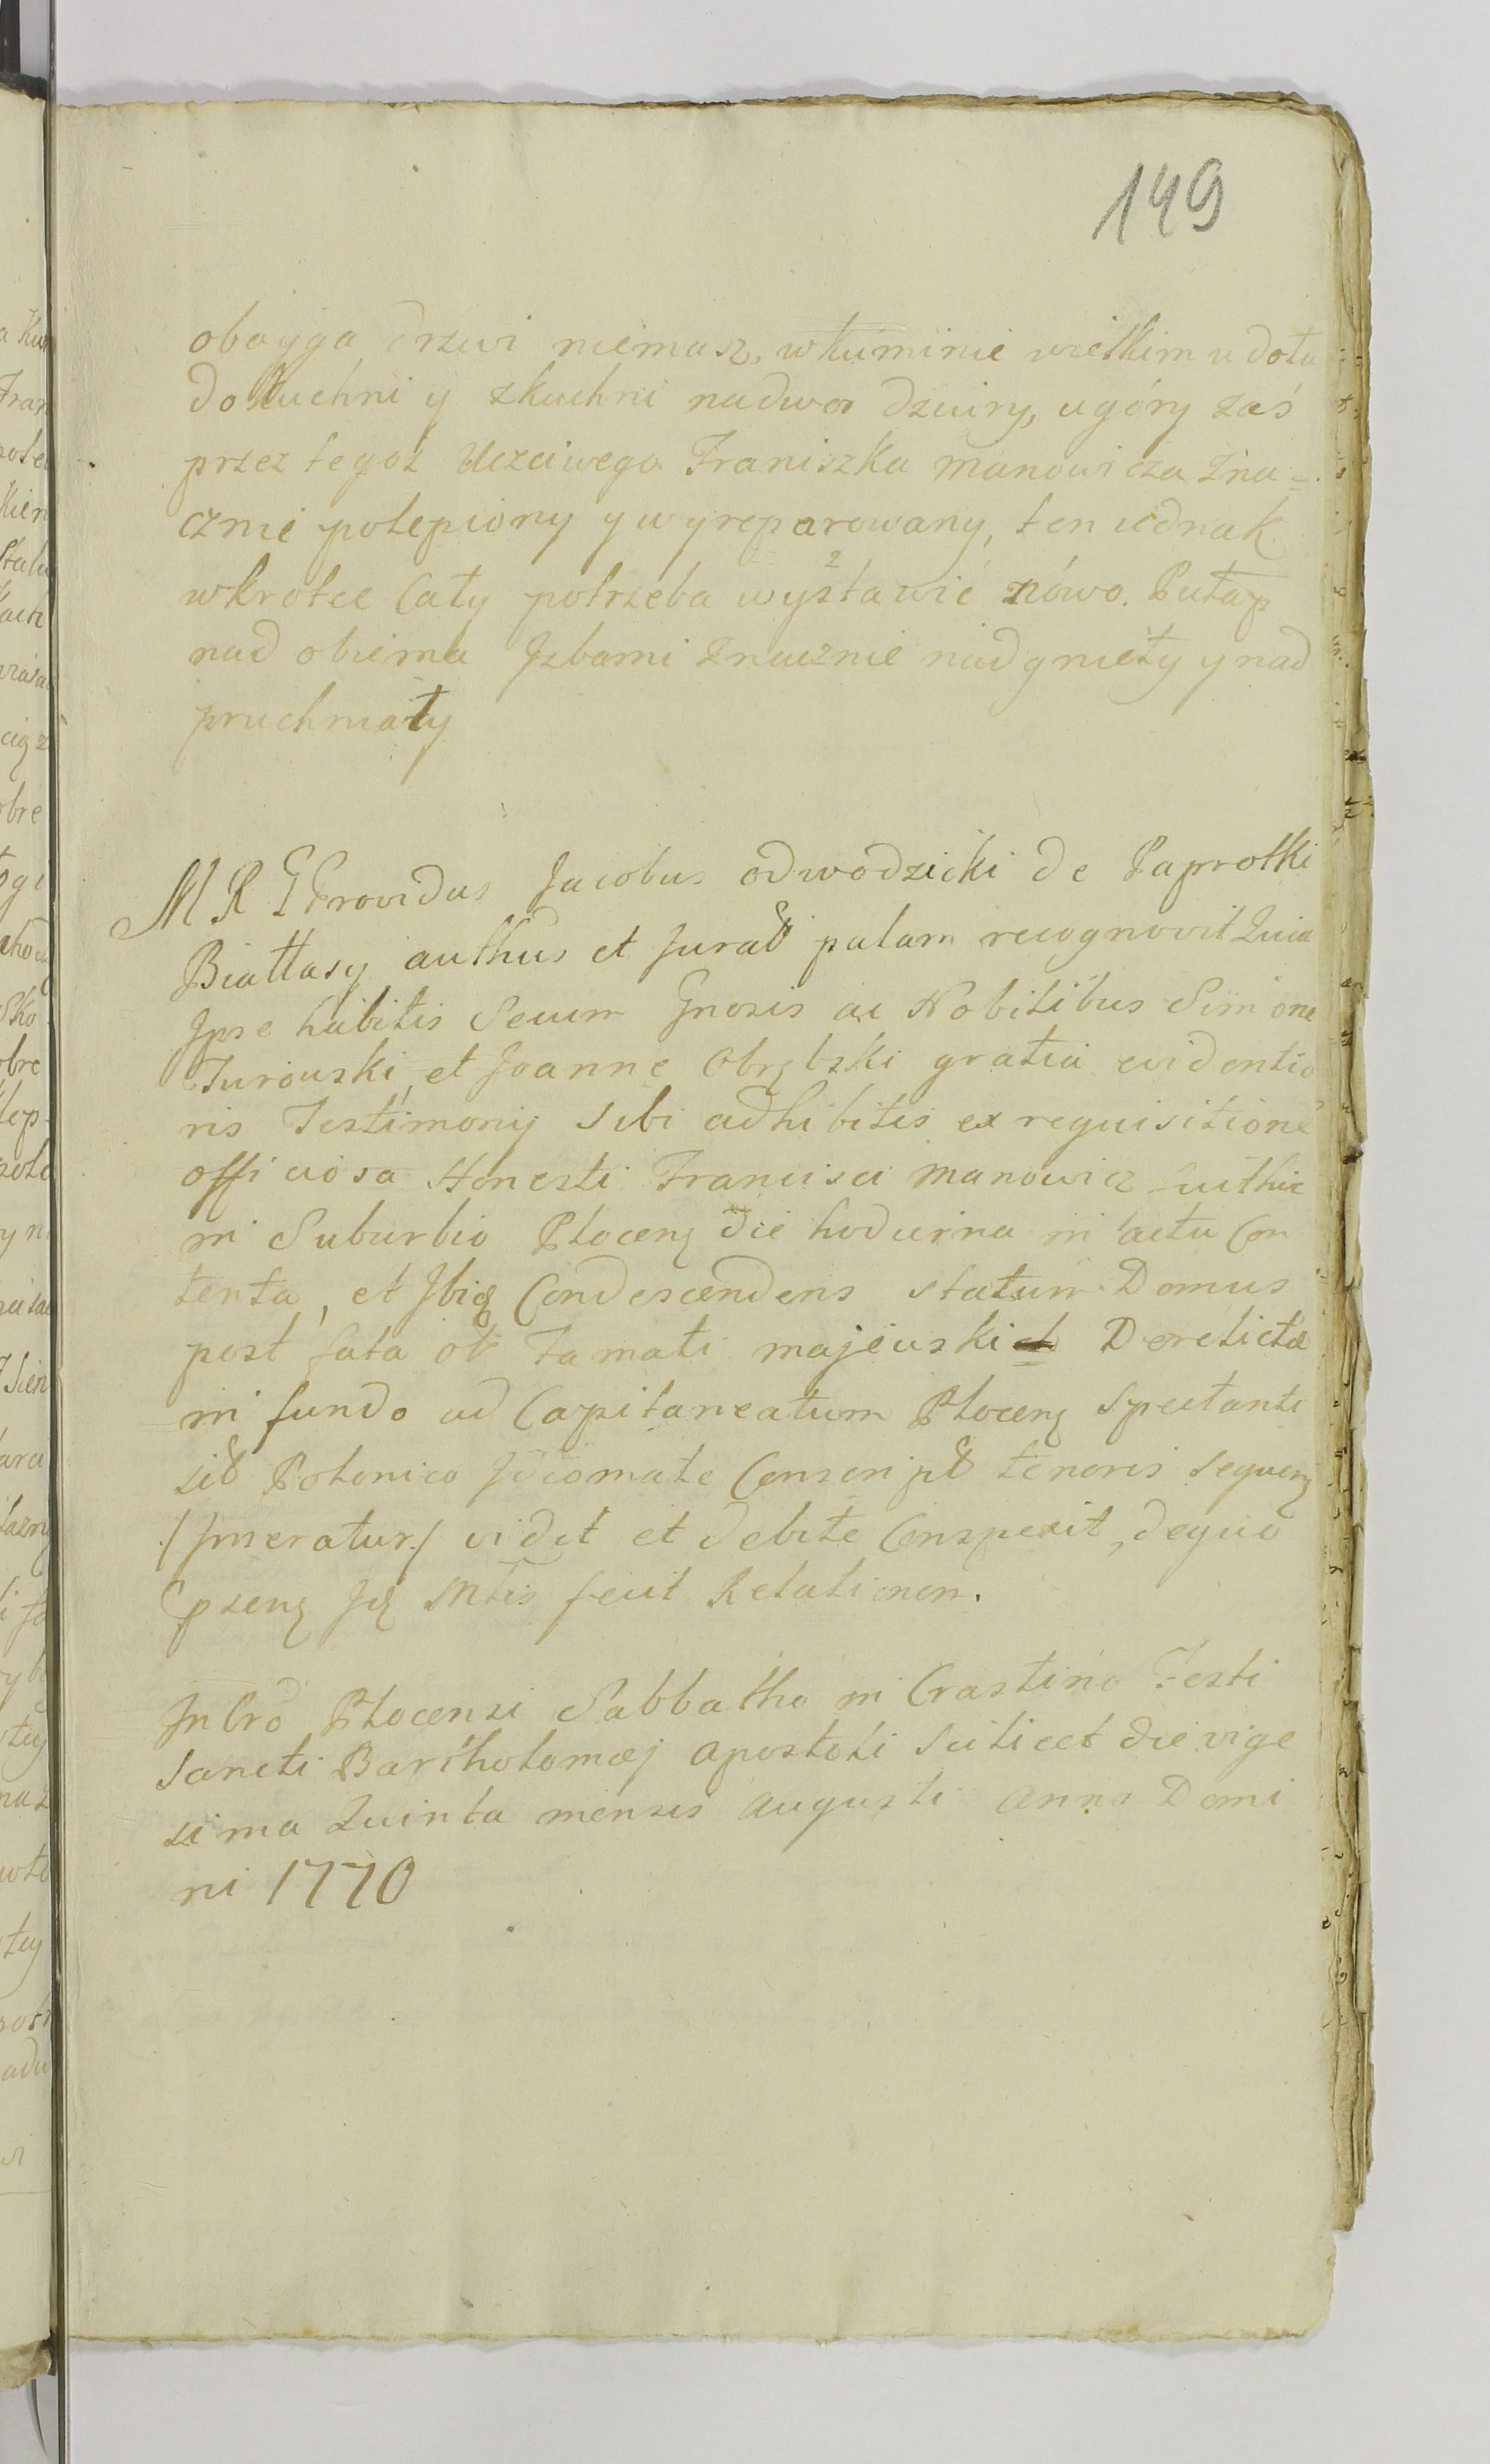 149
obayga drzwi niemasz, wkuminie wielkim u dołu
do kuchni y zkuchni nadwor dziury, ugóry zaś
przez tegoż Uczciwego Franiszka Manowicza zna=
cznie polepiony y wyreparowany, ten iednak
wkrotce Cały potrzeba wystawić znówo. Pułap
nad obiema Jzbami znacznie nadgniety y nad
pruchniały
M R G Providus Jacobus odwodzicki de Paprotki
Białtasy authus et Jurat palam recognovit Quia
Jpse habitis Secum Gnosis ac Nobilibus Simone
Turowski, et Joanne Obrębski gratia evidentio
ris Testimonij Sibi adhibitis ex requisitione
officiosa Honesti Francisci Manowicz
in Suburbio Płocenq die hodierna in actu Con
tenta, et Jbiq Condescendens statum Domus
post fata ol Famati majewski Derelictæ
in fundo ad Capitaneatum Płocenq Spectanti
sit Polonico Jdiomate Conscript tenoris Sequenq
/Jnseratur/ vidit et debite Conspexit, dequo
pzenq Jq Mtis fecit Relationem.
In Crō Płocensi Sabbatho in Crastino Festi
Sancti Bartholomæj Apostoli Scilicet die vige
sima Quinta mensis Augusti Anno Domi
ni 1770